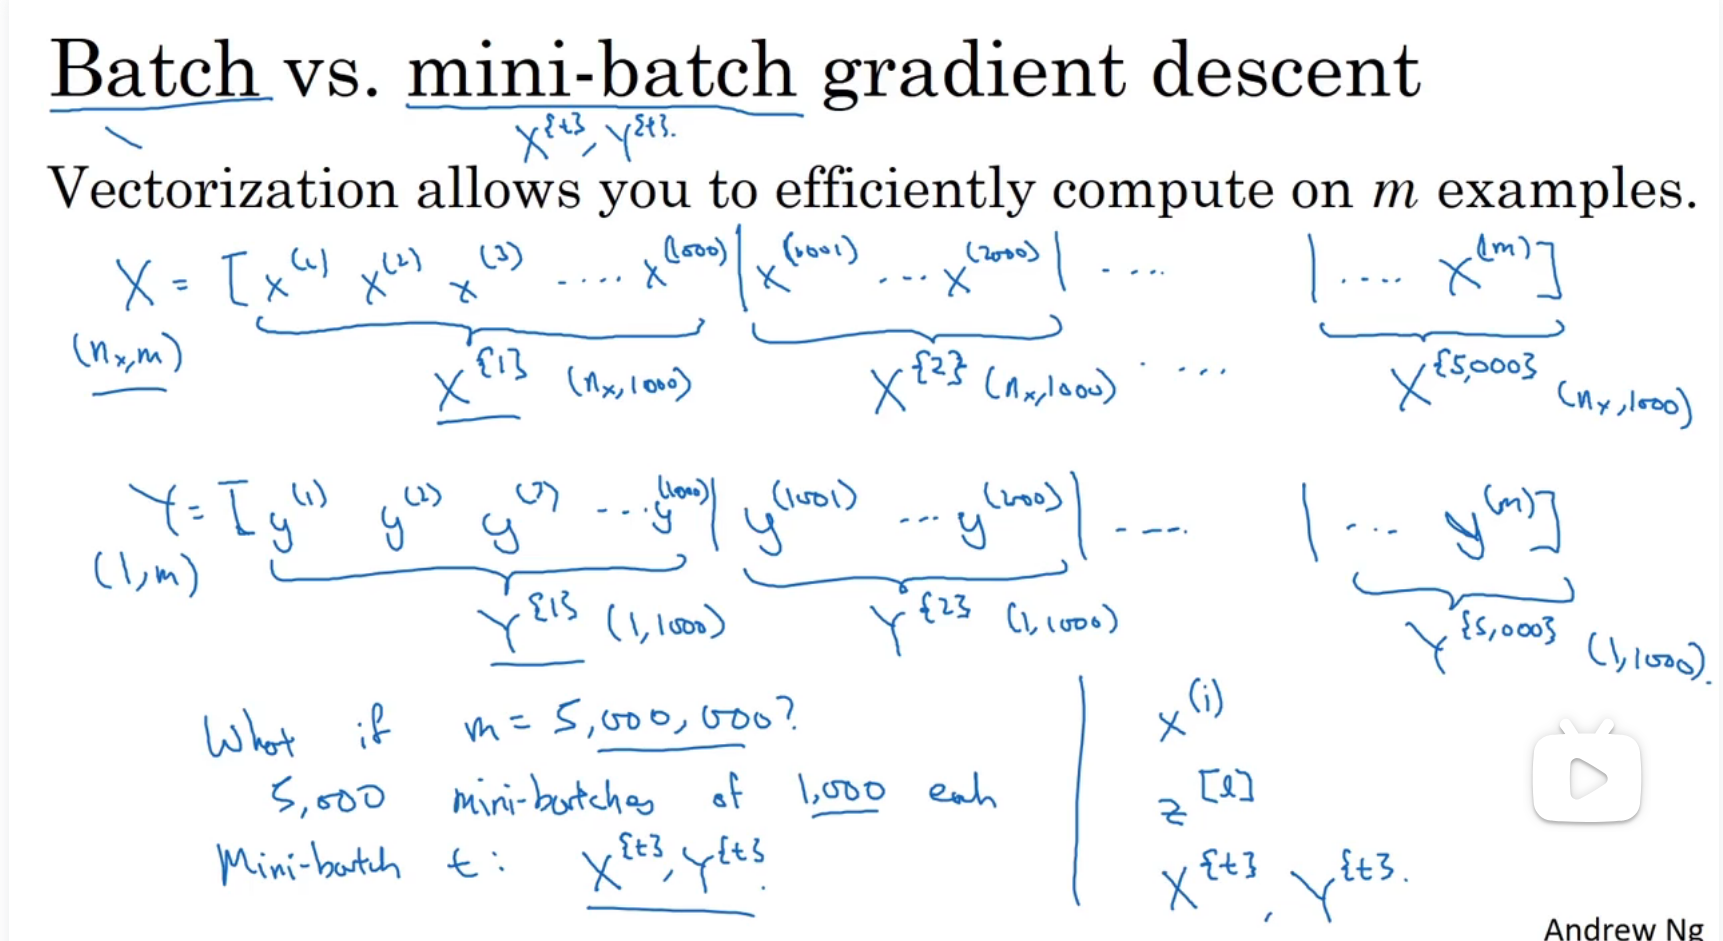 Batch vs. mini-batch gradient descent
X^{t}, Y^{t}.
Vectorization allows you to efficiently compute on m examples.
X = [x^(1) x^(2) x^(3) .... x^(1000) | x^(1001) ... x^(2000) | .... | .... x^(m)]
(n_x, m)
X^{1} (n_x, 1000) X^{2} (n_x, 1000) .... X^{5,000} (n_x, 1000)
Y = [y^(1) y^(2) y^(3) ... y^(1000) | y^(1001) ... y^(2000) | .... | ... y^(m)]
(1, m)
Y^{1} (1, 1000) Y^{2} (1, 1000) Y^{5,000} (1, 1000).
What if m = 5,000,000?
5,000 mini-batches of 1,000 each
Mini-batch t: X^{t}, Y^{t}.
x^(i)
z^[l]
X^{t}, Y^{t}.
Andrew Ng